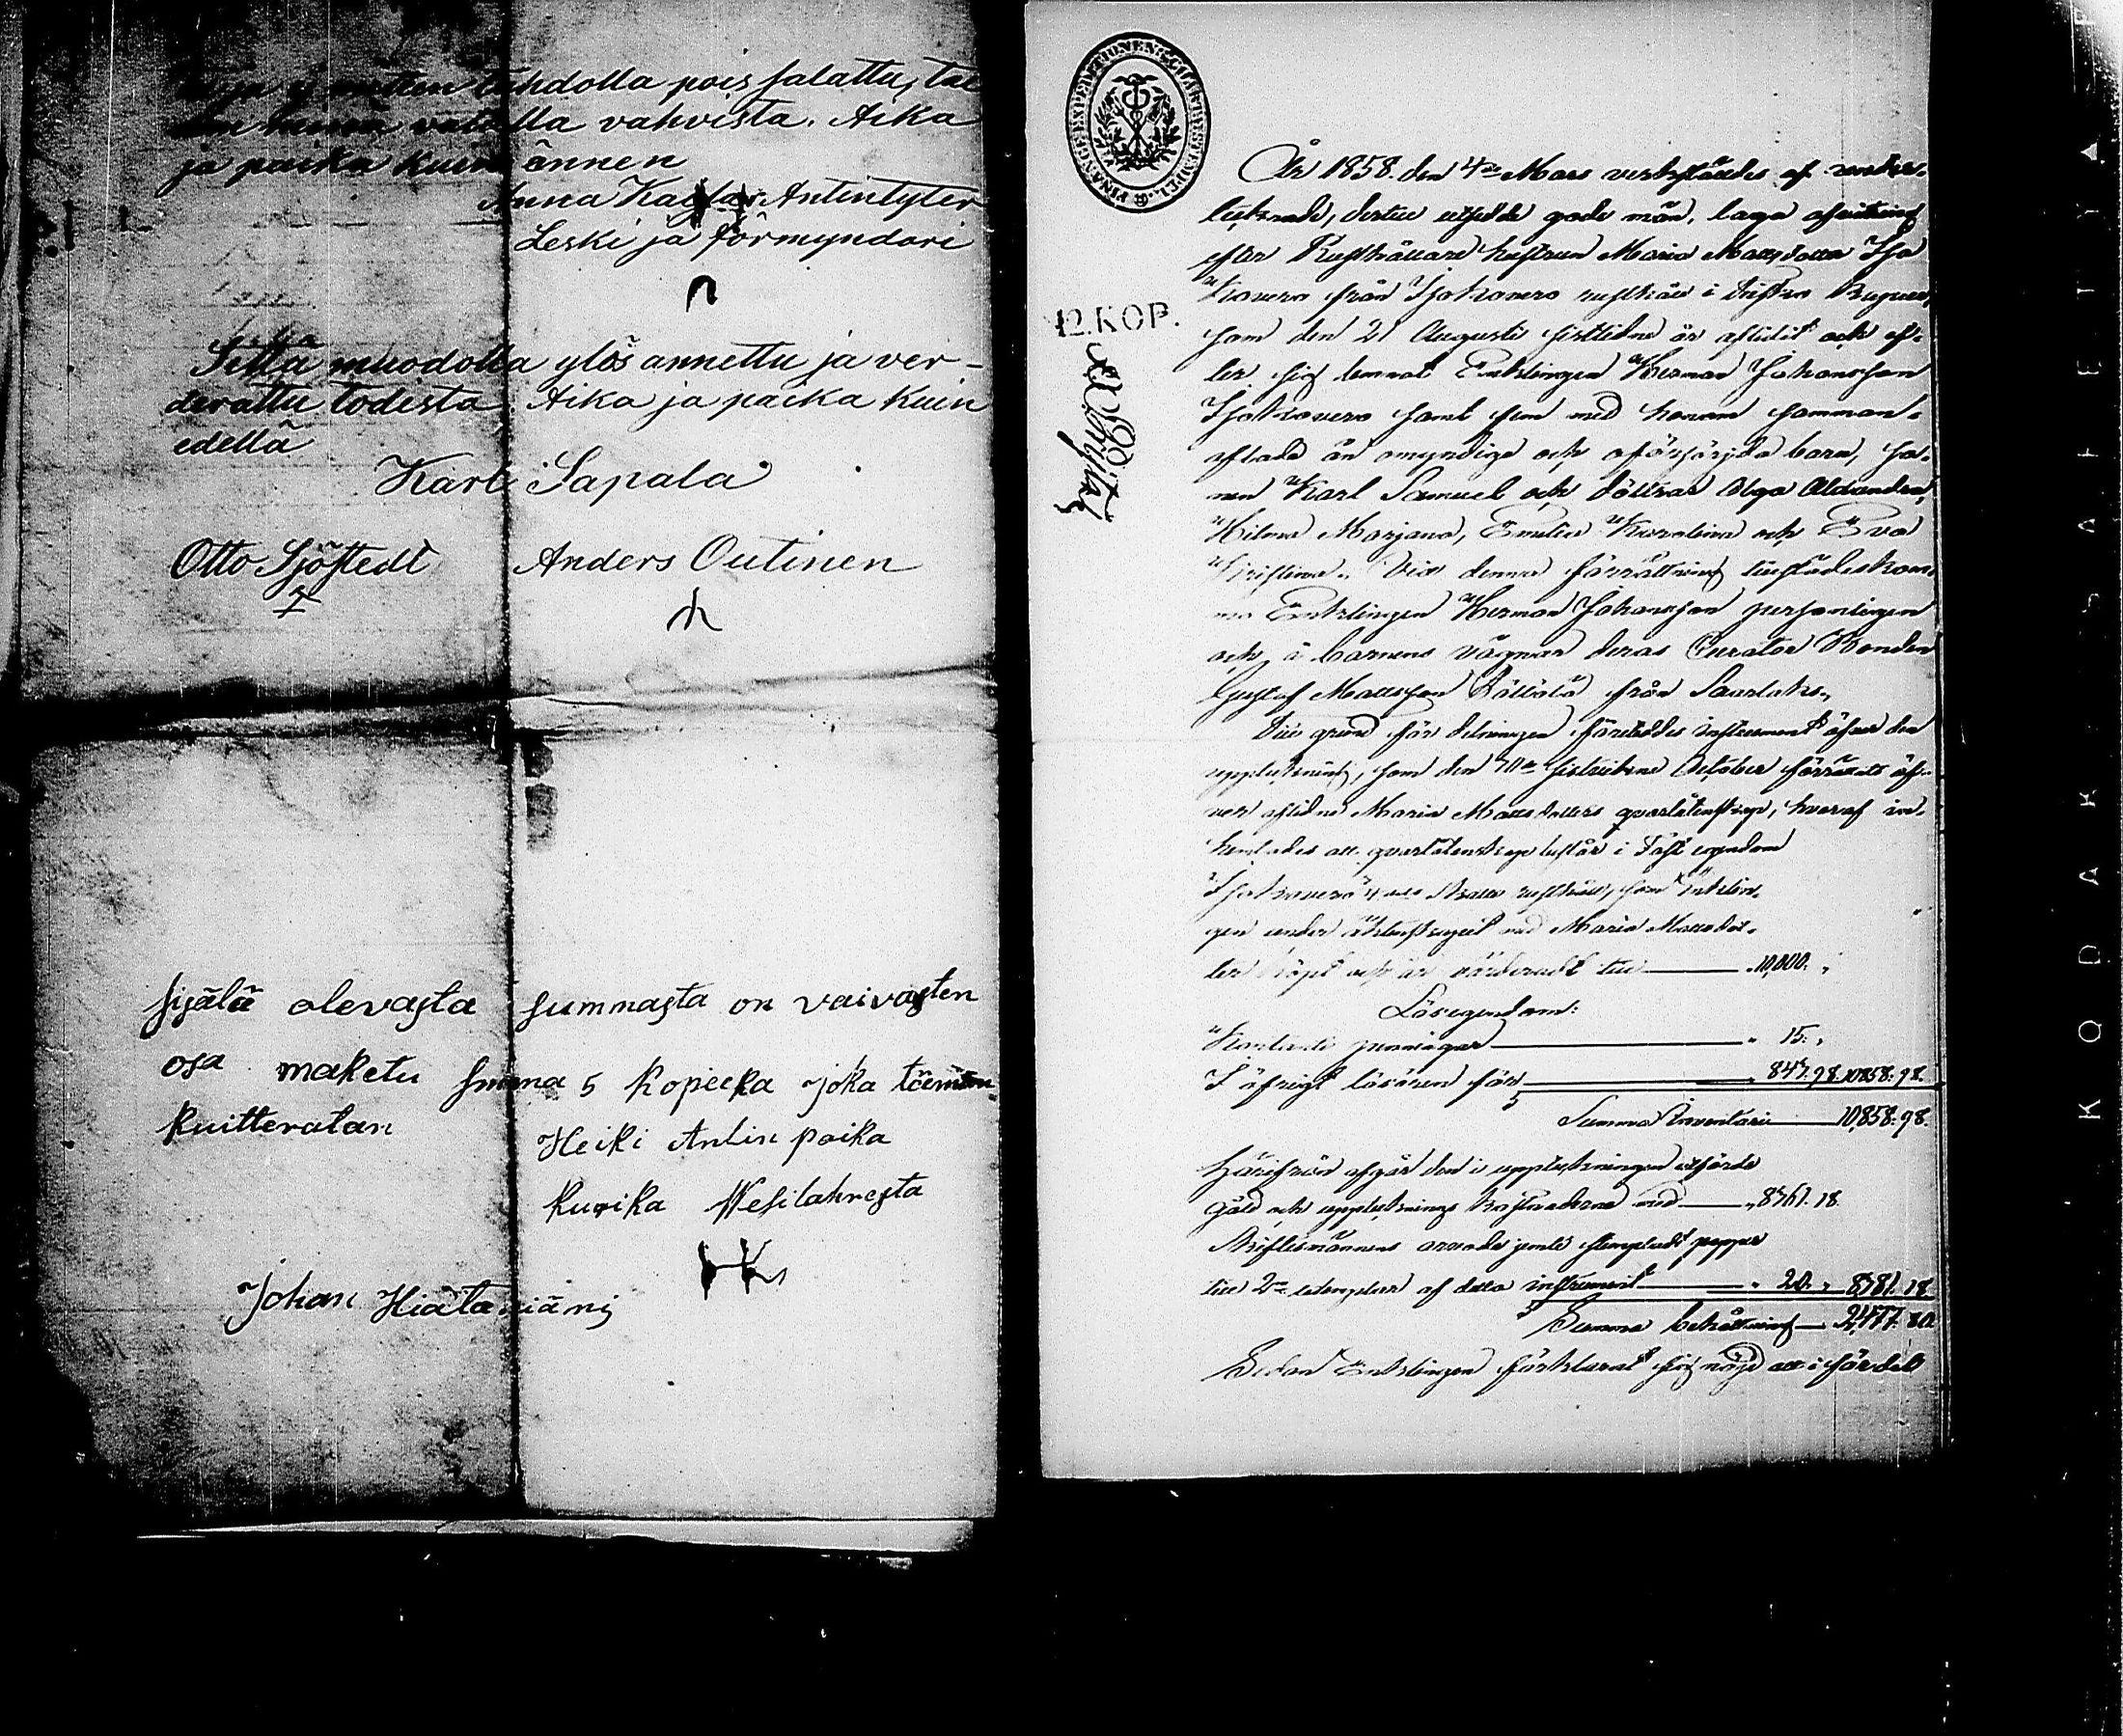 tahdolla pois salattu, tai
valalla vahvista. Aika
ja paika kuin ännen
Anna Antintyter
Leski ja förmyndari
Sillä muodolla ylös annettu ja ver-
derattu todista. Aika ja paika kuin
edellä
Karl Sapala
Otto Sjöstedt Anders Outinen
sisälä olevasta summasta on vaivasten
osa maketu summa 5 kopecka joka täemän
kuitteratan Heiki Antin poika
kurika Wesilahresta
Johan
FINANCE EXPEDITIONENS CHARTÆ STEMPEL
12. KOP.
År 1858. den 4de Mars verkställdes af under-
tecknade, dertill utsedde gode män, laga afvittring
efter Rusthållare hustrun Maria Mattsdotter Iso
Kouvero från Isokouvero rusthåll i
som den 21 Augusti sistlidne år aflidit och ef-
ter sig lemnat Enklingen Herman Johansson
Isokouvero samt fem med honom samman-
aflade än omyndige och oförsörjda barn, so-
nen Karl Samuel och döttrar Olga
Hilma Marjana, Emilia Karolina och Eva
Kristina. Vid denna förrättning tillstädeskom-
mo Enklingen Herman Johansson personligen
och å barnens vägnar deras Curator Bonden
Gustaf Mattsson från
Till grund för delningen företeddes instrument öfver den
uppteckning, som den sistlidne October förrättats öf-
ver aflidna Maria Mattsdotters qvarlåtenskap, hvaraf in-
hemtades att qvarlåtenskapen består i Fast egendom
Isokouvero rusthåll, som Enklin-
gen under äktenskapet med Maria Mattsdot-
ter köpt och är värderadt till 10,000.
Lösegendom:
Kontanta penningar 15.
I öfrigt lösören för 843. 98. 10858. 98.
Summa Inventarii 10,858. 98.
Härifrån afgår den i uppteckningen utförde
gäld och uppteckningskostnaderne med 8361. 18
Skiftesmännens arvode jemte stempladt papper
till 2ne exemplar af detta instrument 20. 8381. 18.
Summa behållning 2,477. 80.
Sedan Enklingen förklarat sig nöjd att i fördel
KODAK SAFETY